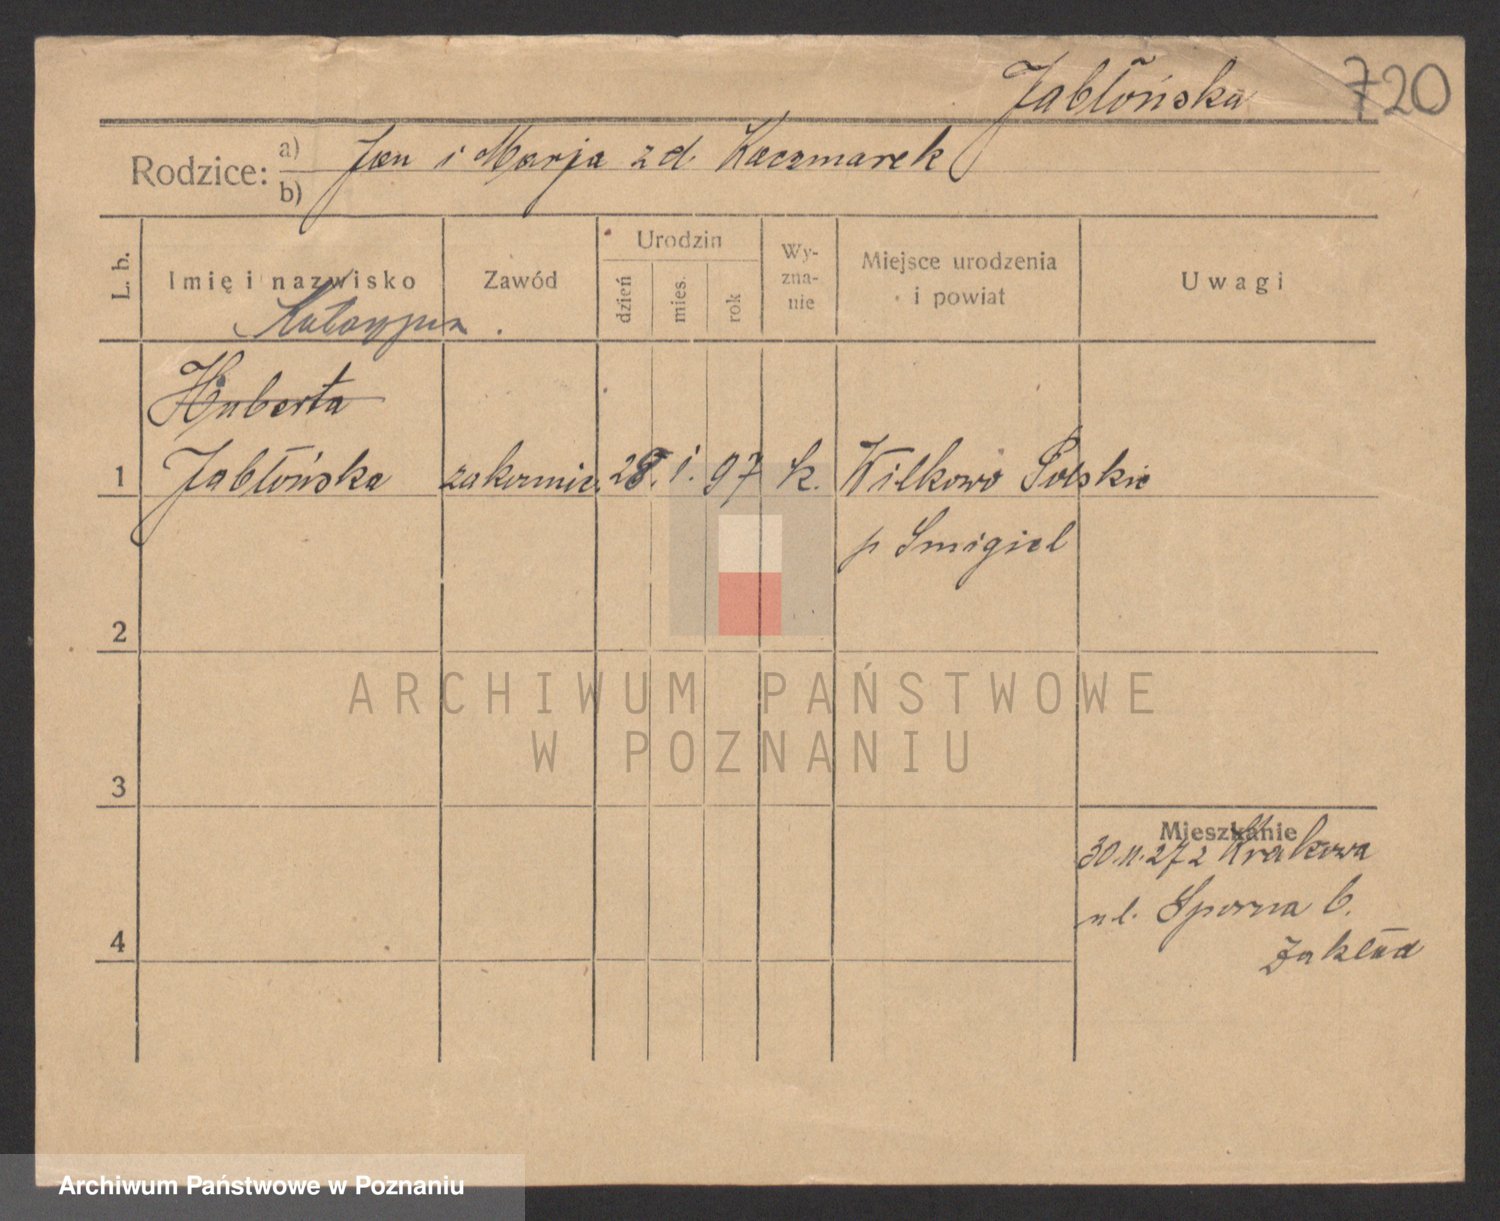 Jabłońska 720
Rodzice: a) Jan i Marja z d. Kaczmarek
b)
L. b.
Imię i nazwisko
Zawód
Urodzin
dzień
mies.
rok
Wy-
zna-
nie
Miejsce urodzenia
i powiat
Uwagi
Katarzyna
Huberta
1 Jabłońska zakonnic. 28. 1. 97 k. Wilkowo Polskie
p Smigiel
2
ARCHIWUM PAŃSTWOWE
W POZNANIU
3
Mieszkanie
30.11.27 z Krakowa
ul. Sporna 6.
Zakład
4
Archiwum Państwowe w Poznaniu